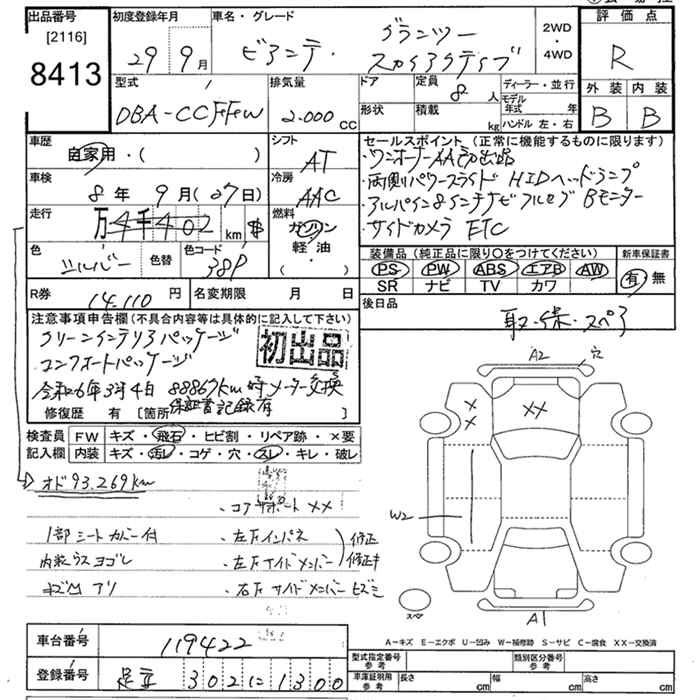 出品番号
[2116]
8413
初度登録年月
29年9月
車名・グレード
ビアンテ
グランツ
スカイアクティブ
2WD
・
4WD
評価点
R
外装 内装
B B
型式
DBA-CCFFFW
排気量
2.000 CC
ドア
定員
8人
形状
積載
kg
ディーラー・並行
モデル年式 年
ハンドル 左・右
車歴
自家用・( )
シフト
AT
車検
8年9月(07日)
冷房
AAC
走行
万4千402 km
燃料
ガソリン
軽油
( )
色
シルバー
色替
色コード
38P
R券
14.110円
名変期限 月 日
セールスポイント(正常に機能するものに限ります)
・ワンオーナーAA初出品
・両側パワースライド HIDヘッドランプ
・アルパイン8インチナビ フルセグ Bモニター
・サイドカメラ ETC
装備品(純正品に限り○をつけてください)
PS PW ABS エアB AW
SR ナビ TV カワ
新車保証書
有 無
後日品
取・保・スペア
注意事項申告欄(不具合内容等は具体的に記入して下さい)
クリーンインテリアパッケージ
コンフォートパッケージ
初出品
令和6年3月4日 88867km時メーター交換
保証書記録有
修復歴 有 [箇所 ]
検査員
記入欄
FW キズ・飛石・ヒビ割・リペア跡・×要
内装 キズ・汚レ・コゲ・穴・スレ・キレ・破レ
オド93.269km
・コアサポート××
1部シートカバー付
・左Fインパネ
修正
内装ウスヨゴレ
・左Fサイドメンバー
修正キ
キズ凹アリ
・右Fサイドメンバーヒズミ
A2
穴
×
×
××
W2
スペア
A1
A-キズ E-エクボ U-凹み W-補修跡 S-サビ C-腐食 XX-交換済
車台番号
119422
登録番号
足立 302に1300
型式指定番号
参考
類別区分番号
参考
車庫証明用
参考
長さ cm 幅 cm 高さ cm